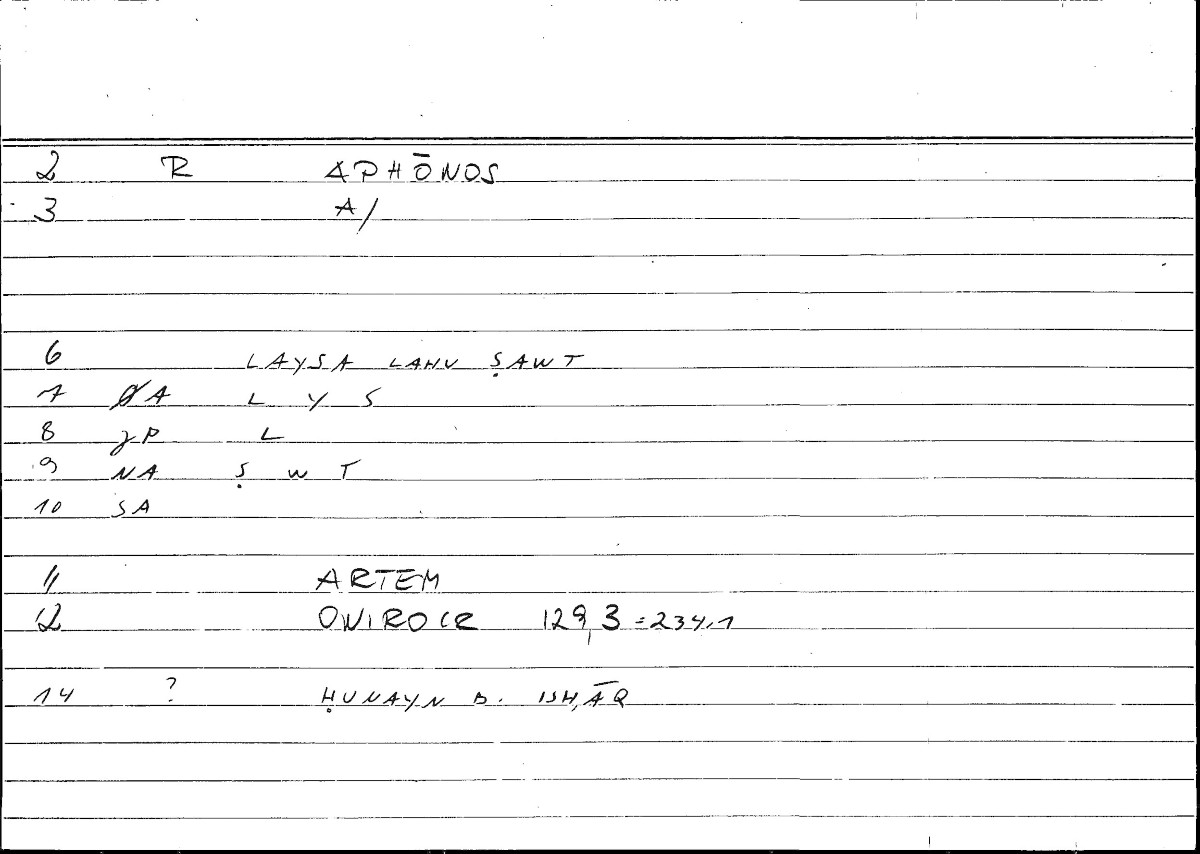 2 R APHŌNOS
3 A/
6 LAYSA LAHU ṢAWT
7 ØA L Y S
8 γP L
9 NA Ṣ W T
10 SA
11 ARTEM
12 ONIROCR 129,3=234.1
14 ? ḤUNAYN B. ISḤĀQ